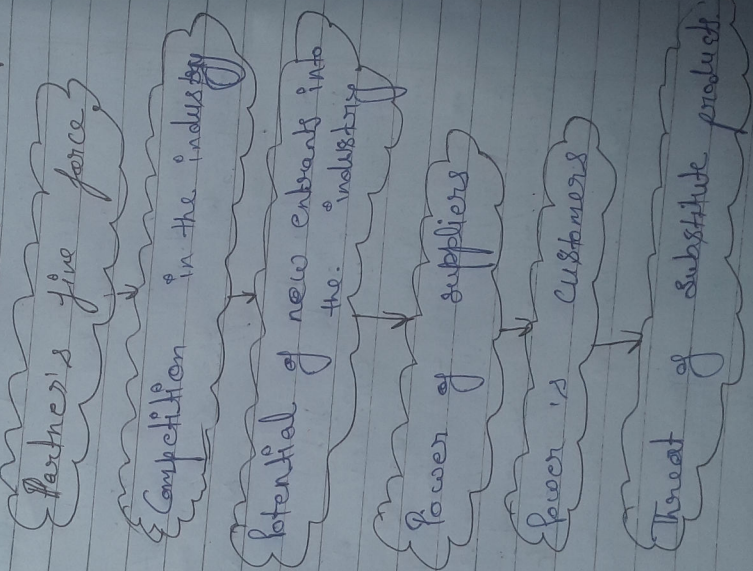 Partner's five force
Competition in the industry
Potential of new entrants into
the. industry
Power of suppliers
Power is customers
Threat of substitute products.